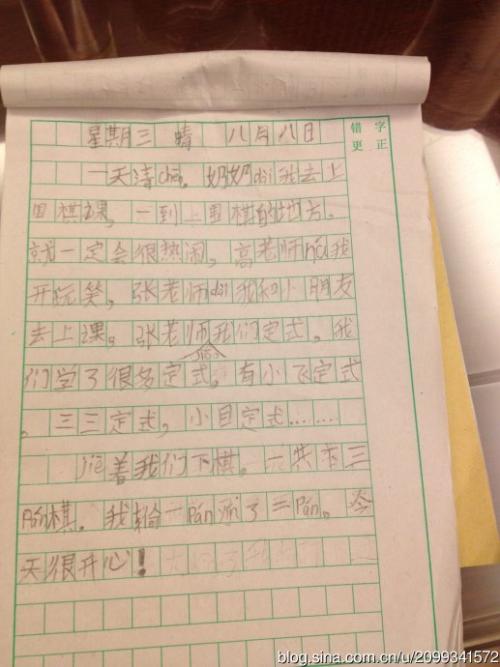 星期三 晴 八月八日
错字
更正
一天清chén。奶奶dài我去上
围棋课，一到上围棋的地方。
就一定会很热闹，高老师hé我
开玩笑，张老师dài我和小朋友
去上课。张老师jiāo我们定式。我
们学了很多定式。有小飞定式
、三三定式，小目定式……
jiē着我们下棋。一共下三
Pán棋。我输一Pán 了二Pán。今
天很开心！
blog.sina.com.cn/u/2099341572